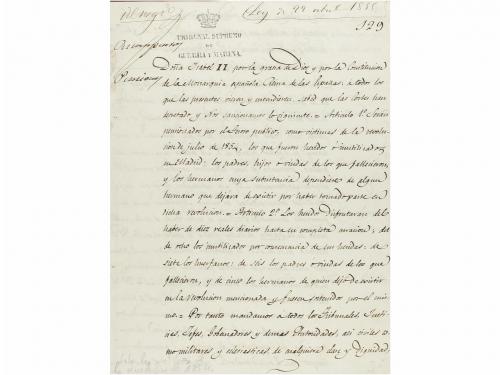 Ley de 22 abril 1855
129
TRIBUNAL SUPREMO
DE
GUERRA Y MARINA.
Recompensas
Pensiones
Doña Isabel II por la gracia de Dios y por la Constitucion
de la Monarquia española Reina de las Españas. a todos los
que las presentes vieren y entendieren, sabed que las Cortes han
decretado y Nos sancionamos lo siguiente. = Articulo 1º Serán
pensionados por el Tesoro publico, como victimas de la revolu-
cion de julio de 1854, los que fueron heridos o inutilizados
en Madrid: los padres, hijos o viudas de los que fallecieron,
y los hermanos cuya subsistencia dependiese de algun
hermano que dejara de existir por haber tomado parte en
dicha revolucion. = Articulo 2º Los heridos disfrutaran del
haber de diez reales diarios hasta su completa curacion; del
de ocho los inutilizados por consecuencia de sus heridas: de
siete los huerfanos: de seis los padres o viudas de los que
fallecieron, y de cinco los hermanos de quien dejó de existir
en la revolucion mencionada y fuesen sostenidos por el mis-
mo. = Por tanto mandamos a todos los Tribunales, Justi-
cias, Jefes, Gobernadores y demas Autoridades, asi civiles co-
mo militares y eclesiasticas, de cualquiera clase y dignidad,